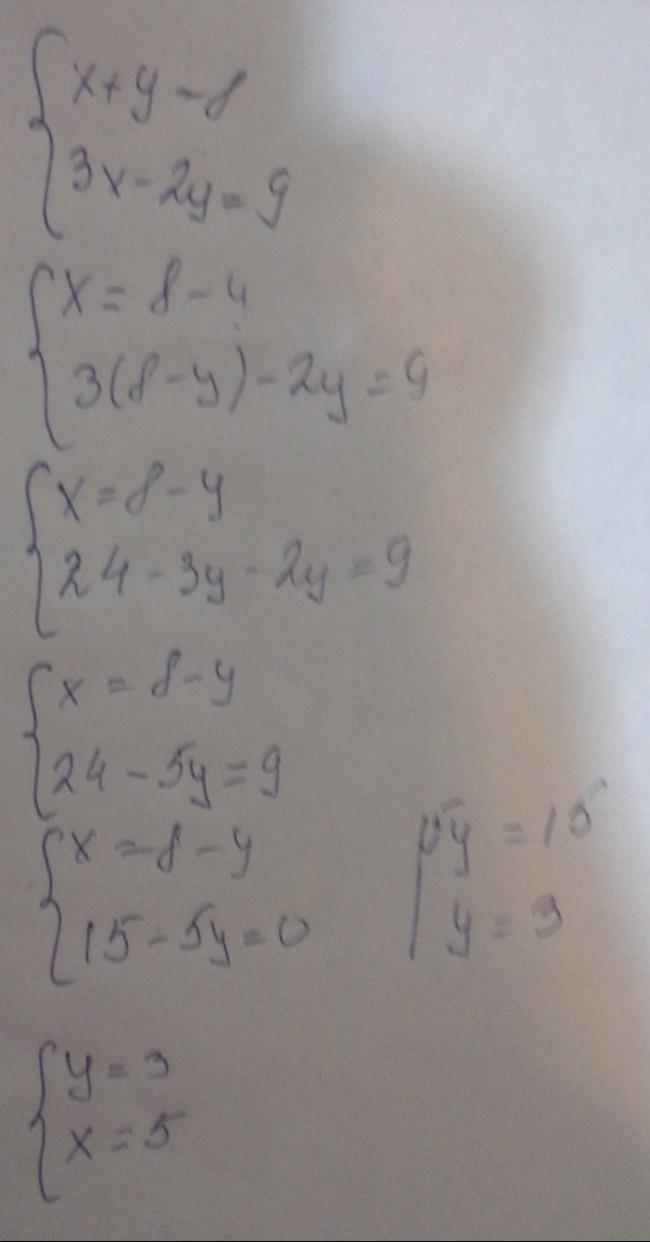 x+y=8
3x-2y=9
x=8-y
3(8-y)-2y=9
x=8-y
24-3y-2y=9
x=8-y
24-5y=9
x=8-y
15-5y=0
5y=15
y=3
y=3
x=5